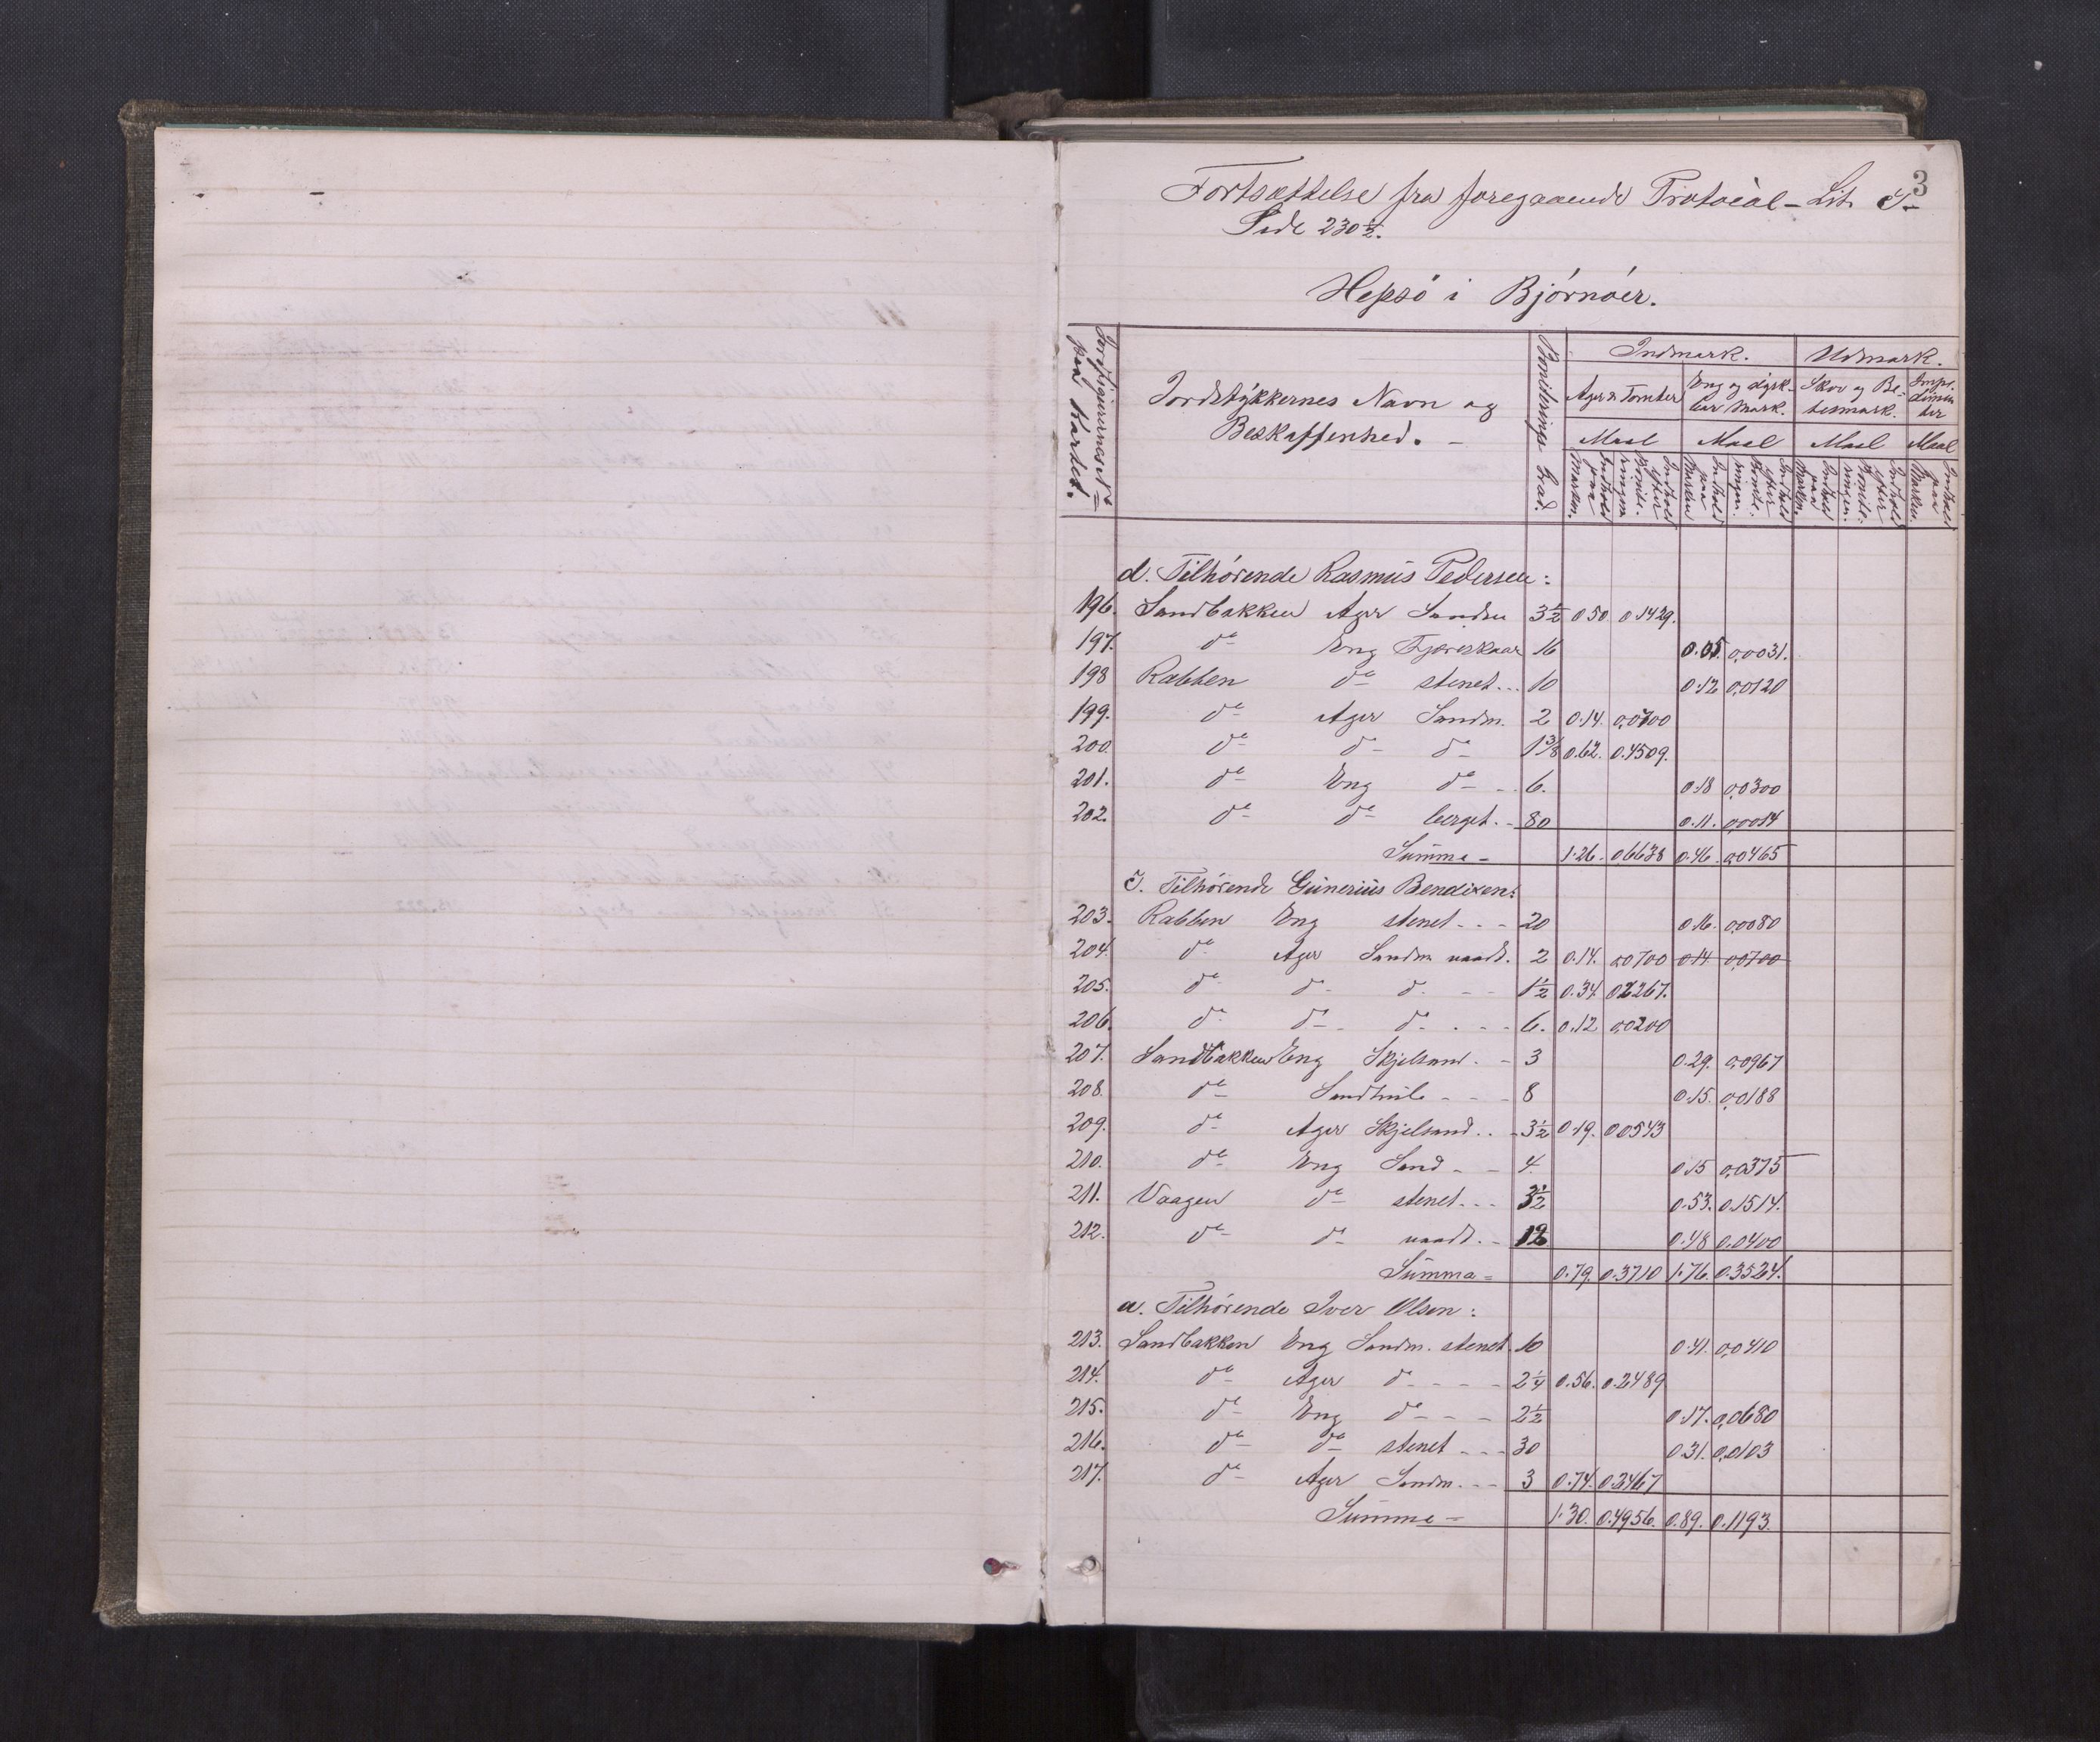 3
Fortsættelse fra foregaaende Protocol – Lit.
Side 230½.
Hepsö i Björnöer.
Jordfigurernes No paa Kartet.
Jordstykkernes Navn og Beskaffenhed. –
Boniterings Grad.
Indmark.
Udmark.
Ager & Tomter
Eng og dyrkbar Mark.
Skov og Beitesmark.
Impedimenter
Maal Maal Maal Maal
Indhold paa Marken. Indhold efter Boniteringen. Indhold paa Marken Indhold efter Boniteringen. Indhold paa Marken. Indhold efter Boniteringen. Indhold paa Marken.
d. Tilhörende Rasmus Pedersen:
196. Sandbakken Ager Sandm 3½ 0.50 0.1429.
197. do Eng Fjæreskaar 16 0.05. 0,0031.
198 Rabben do stenet... 10 0.12 0,0120
199. do Ager Sandm. 2 0.14. 0,0700
200. do do do 1 3/8 0.62. 0.4509.
201. do Eng do - - 6. 0.18 0,0300
202. do do berget. - 80 0.11. 0,0014
Summa – 1.26. 0.6638 0.46. 0,0465
Tilhörende Gunerius Bendixen:
203. Rabben Eng stenet - - - 20 0.16. 0,0080
204. do Ager Sandm vaadt. 2 0.14. 0,0700 0.14 0,0700
205. do do do - - 1½ 0.34. 0.2267.
206. do do do - - - 6. 0.12 0,0200
207. Sandbakken Eng Skjelsand. - 3 0.29. 0,0967
208. do Sandhüle - - - 8 0.15. 0,0188
209. do Ager Skjelsand. . - 3½ 0.19. 0.0543
210. do Eng Sand - - 4. 0.15 0,0375
211. Vaagen do stenet. - - 3½ 0.53. 0.1514.
212. do do vaadt. - 12 0.48 0.0400
Summa = 0.79. 0.3710 1.76. 0.3524.
a. Tilhörende Iver Olsen:
213. Sandbakken Eng Sandm. stenet. 10 0.41. 0,0410
214. do Ager do - - - - 2¼ 0.56. 0.2489
215. do Eng do - - - 2½ 0.17. 0,0680
216. do do stenet - - - 30 0.31. 0,0103
217. do Ager Sandm. - - 3 0.74. 0.2467
Summa – 1.30. 0.4956. 0.89. 0.1193.